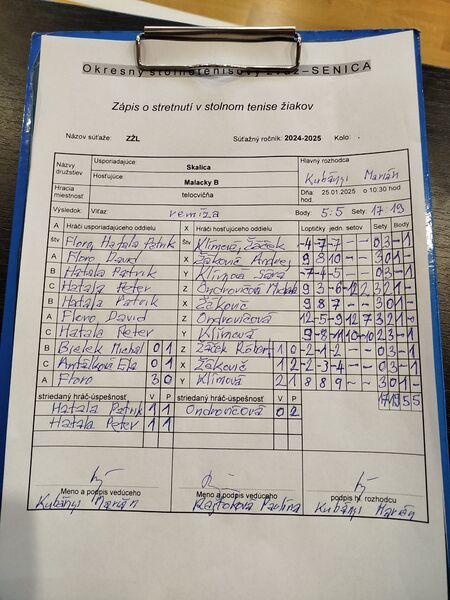 Okresný stolnotenisový zväz–SENICA
Zápis o stretnutí v stolnom tenise žiakov
Názov súťaže: ZŽL Súťažný ročník: 2024-2025 Kolo: .
Názvy družstiev Usporiadajúce: Skalica Hlavný rozhodca
Hosťujúce: Malacky B Kubányi Marián
Hracia miestnosť telocvičňa Dňa: 25.01.2025 o 10:30 hod.
Výsledok: Víťaz: remíza Body: 5:5 Sety: 17:19
A Hráči usporiadajúceho oddielu X Hráči hosťujúceho oddielu Loptičky jedn. setov Sety Body
štv Floro, Hatala Patrik štv Klimová, Žáček -4 -7 -7 - - 0 3 - 1
A Floro David X Žákovič Andrej 9 8 10 - - 3 0 1 -
B Hatala Patrik Y Klimová Sára -7 -4 -5 - - 0 3 - 1
C Hatala Peter Z Ondrovičová Michala 9 -3 -6 12 3 2 1 -
B Hatala Patrik X Žákovič 9 8 7 - - 3 0 1 -
A Floro David Z Ondrovičová 12 -5 -9 12 7 3 2 1 -
C Hatala Peter Y Klimová 2 3 - 1
B Bielek Michal 0 1 Z Žáček Róbert 1 0 -2 -1 -2 - - 0 3 - 1
C Antálková Ela 0 1 X Žákovič 1 2 -2 -3 -4 - - 0 3 - 1
A Floro 3 0 Y Klimová 2 1 8 8 9 - - 3 0 1 -
striedaný hráč-úspešnosť V P striedaný hráč-úspešnosť V P 17 19 5 5
Hatala Patrik 1 1 Ondrovičová 0 2
Hatala Peter 1 1
Meno a podpis vedúceho Meno a podpis vedúceho podpis hl. rozhodcu
Kubányi Marián Paulína Kubányi Marián